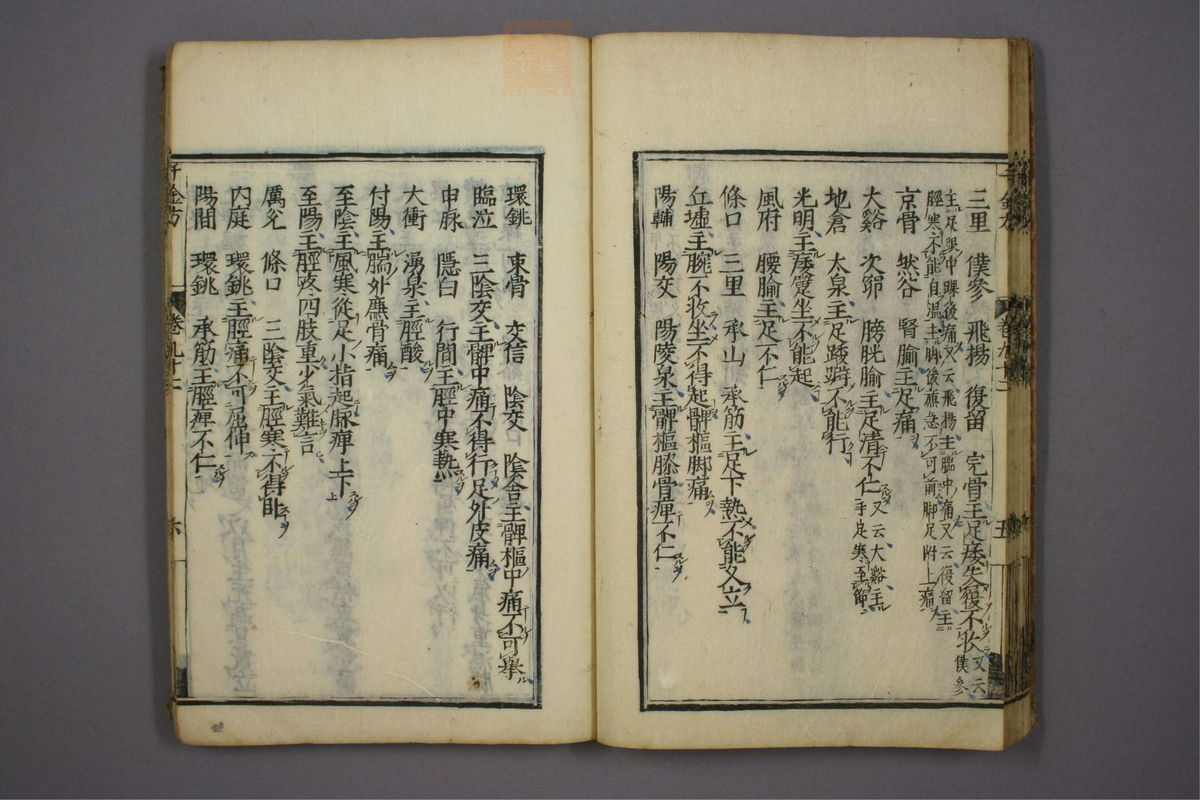 三里 僕參 飛揚 復留 完骨主足痿失履不收又云僕參
主足跟中踝後痛又云飛揚主腨中痛又云復留主
脛寒不能自溫主脚後廉急不可前脚足跗上痛
京骨 然谷 腎腧主足痛
大谿 次窌 膀胱腧主足清不仁又云大谿主手足寒至節
地倉 太泉主足躄蹄不能行
光明主痿躄坐不能起
風府 腰腧主足不仁
條口 三里 承山 承筋主足下熱不能久立
丘墟主腕不收坐不得起髀樞脚痛
陽輔 陽交 陽陵泉主髀樞膝骨痺不仁
環銚 束骨 交信 陰交 陰舍主髀樞中痛不可舉
臨泣 三陰交主髀中痛不得行足外皮痛
申脉 隱白 行間主脛中寒熱
大衝 湧泉主脛酸
付陽主腨外廉骨痛
至陰主風寒從足小指起脉痺上下
至陽主脛疼四肢重少氣難言
厲兊 條口 三陰交主脛寒不得臥
內庭 環銚主脛痛不可屈伸
陽間 環銚 承筋主脛痺不仁
千金方 卷九十二 五
千金方 卷九十二 六